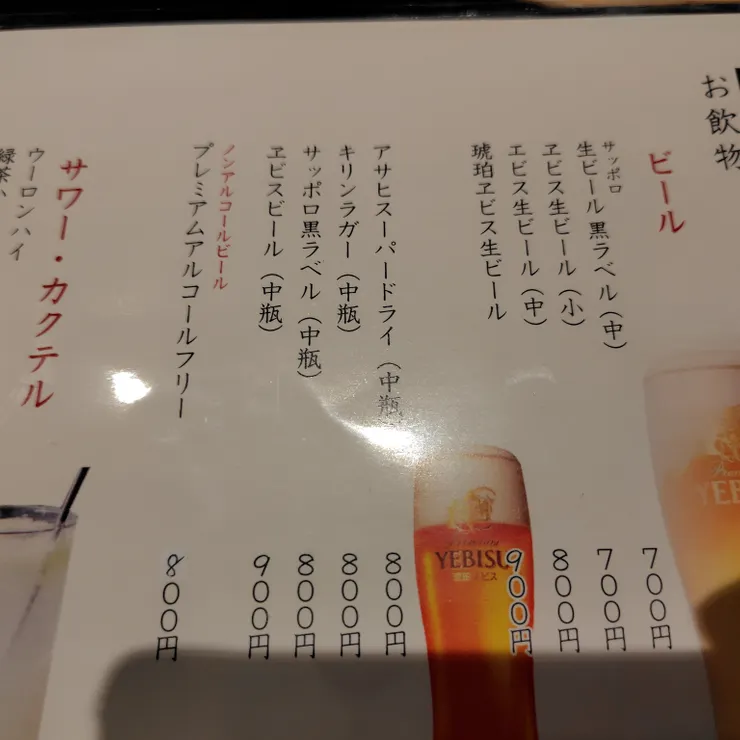 お飲物
ビール
サッポロ
生ビール黒ラベル（中）
ヱビス生ビール（小）
ヱビス生ビール（中）
琥珀ヱビス生ビール
アサヒスーパードライ（中瓶）
キリンラガー（中瓶）
サッポロ黒ラベル（中瓶）
ヱビスビール（中瓶）
ノンアルコールビール
プレミアムアルコールフリー
700円
700円
800円
900円
800円
800円
800円
900円
800円
サワー・カクテル
ウーロンハイ
緑茶ハ
YEBISU
YEBIS